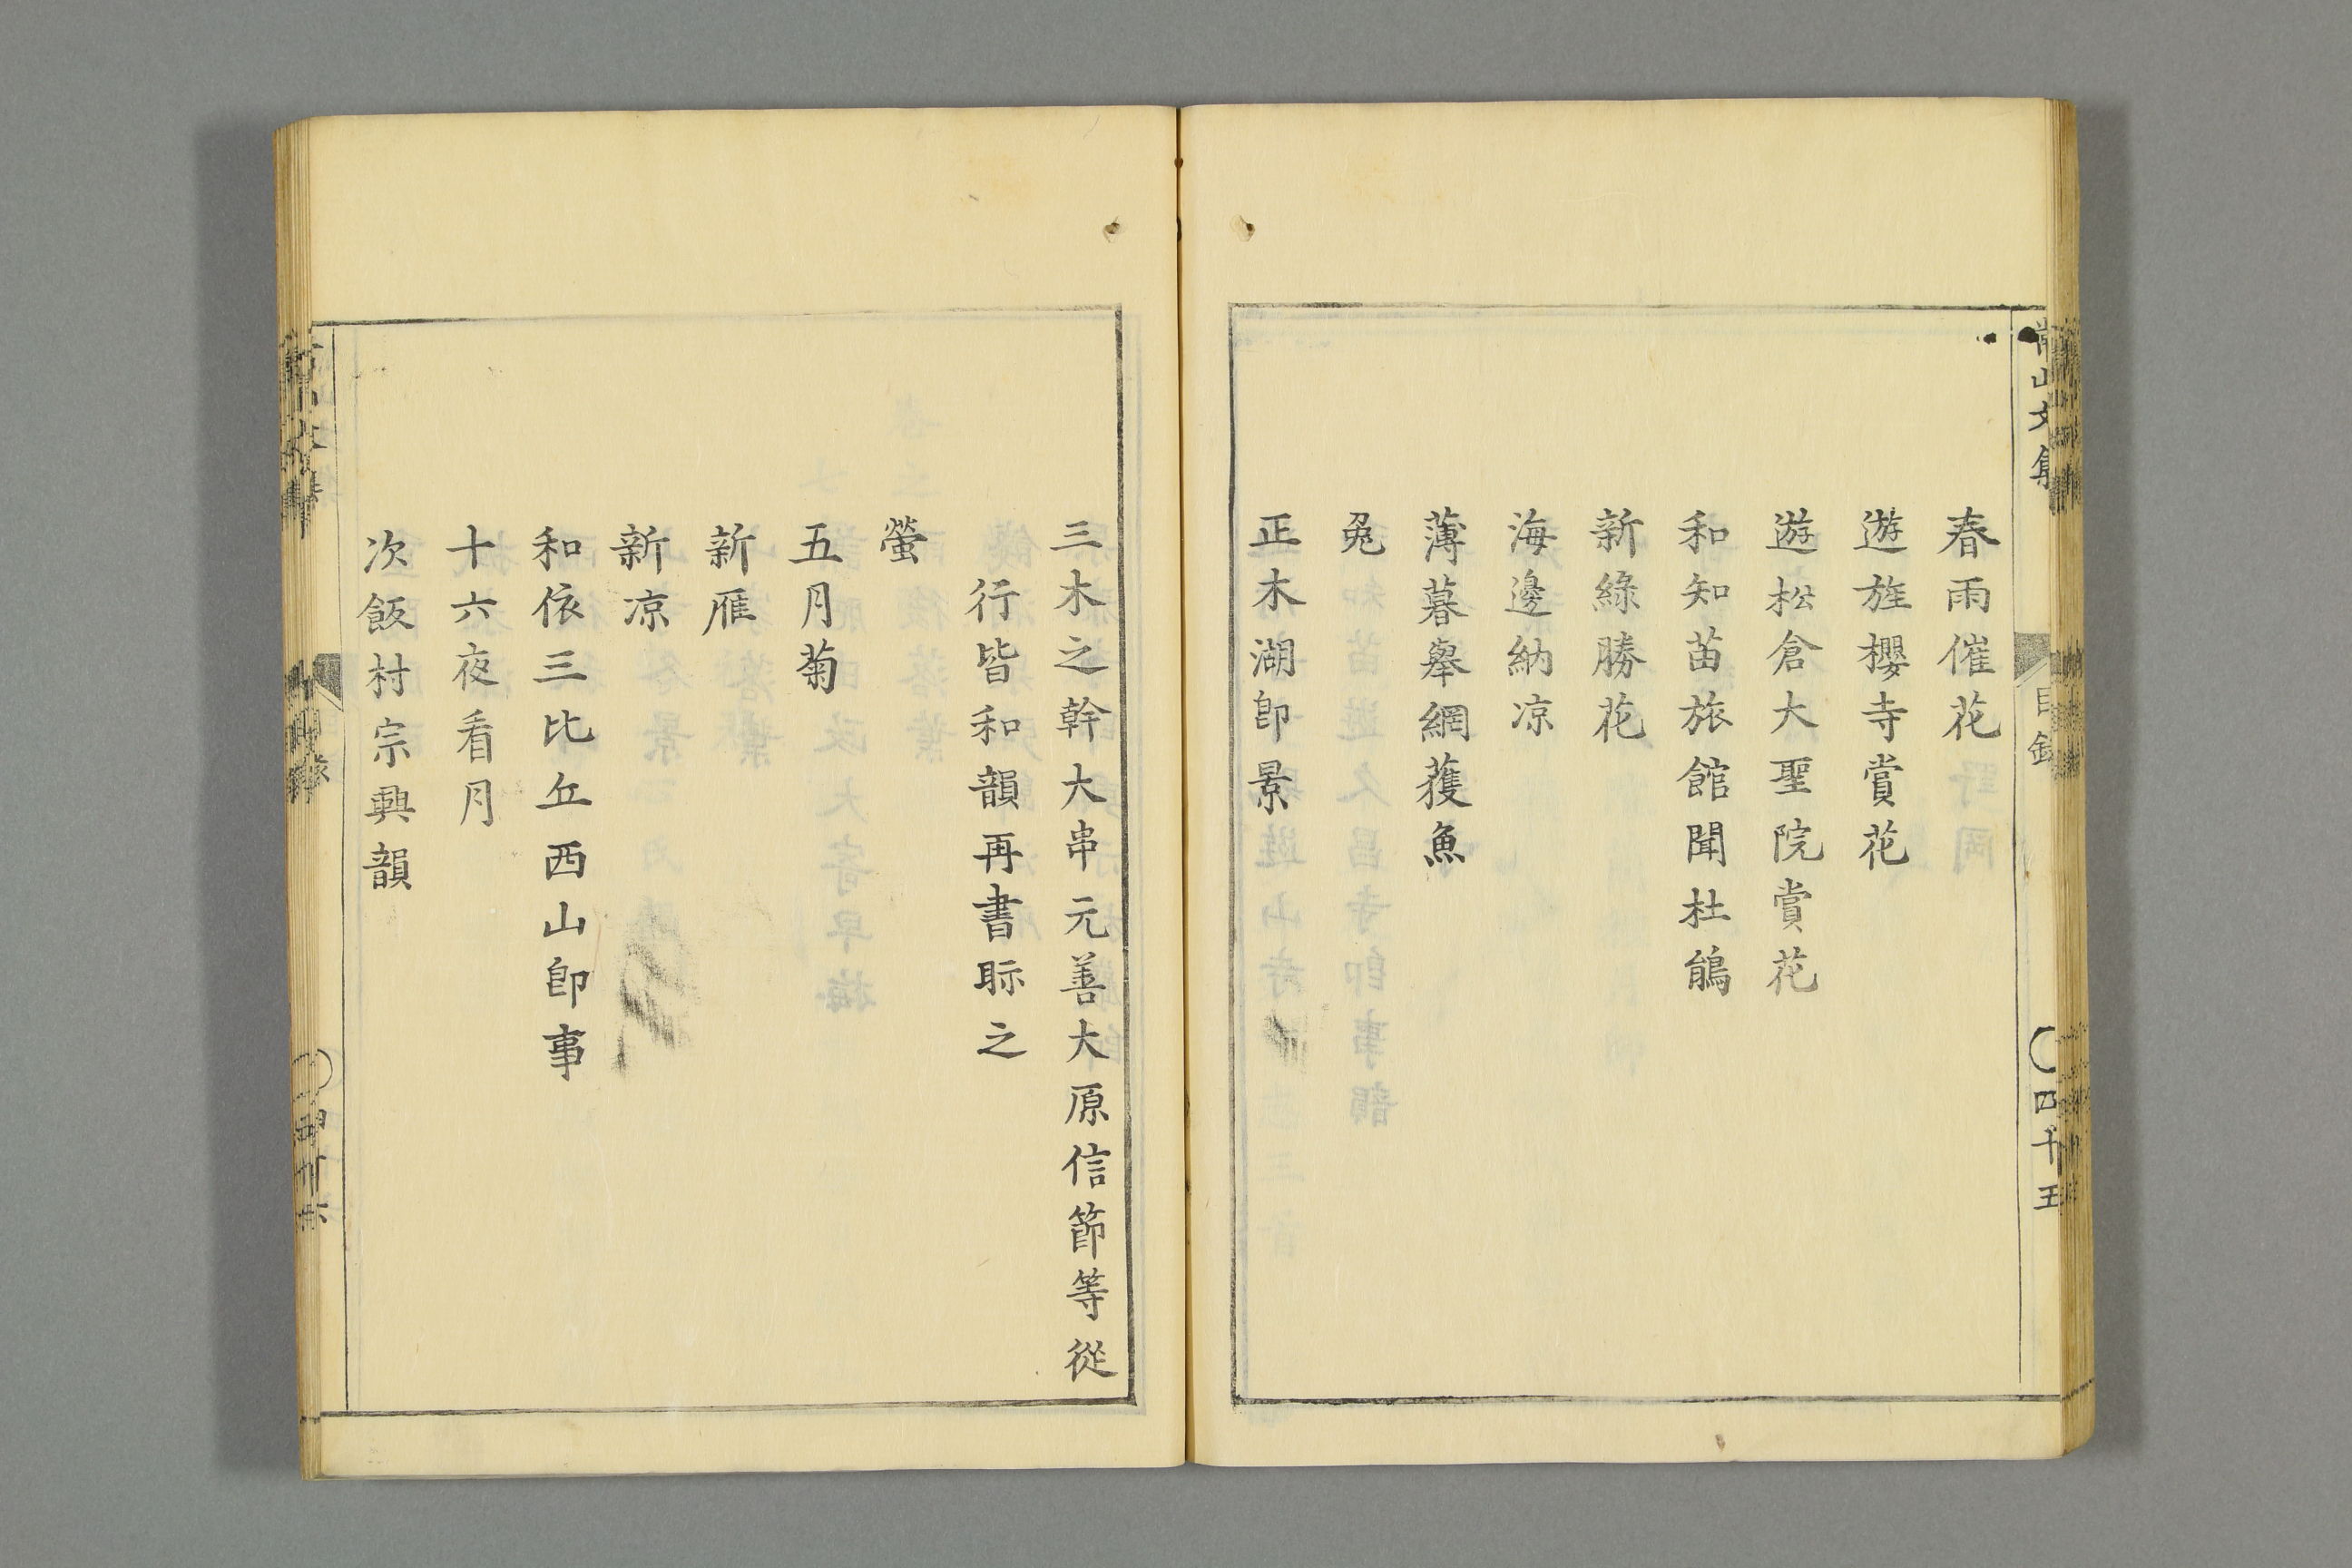 春雨催花
遊旌櫻寺賞花
遊松倉大聖院賞花
和知苗旅館聞杜鵑
新綠勝花
海邊納凉
薄暮舉網獲魚
兔
正木湖卽景
三木之幹大串元善大原信節等從
行皆和韻再書眎之
螢
五月菊
新雁
新凉
和依三比丘西山卽事
十六夜看月
次飯村宗興韻
山文集
目錄
四十五